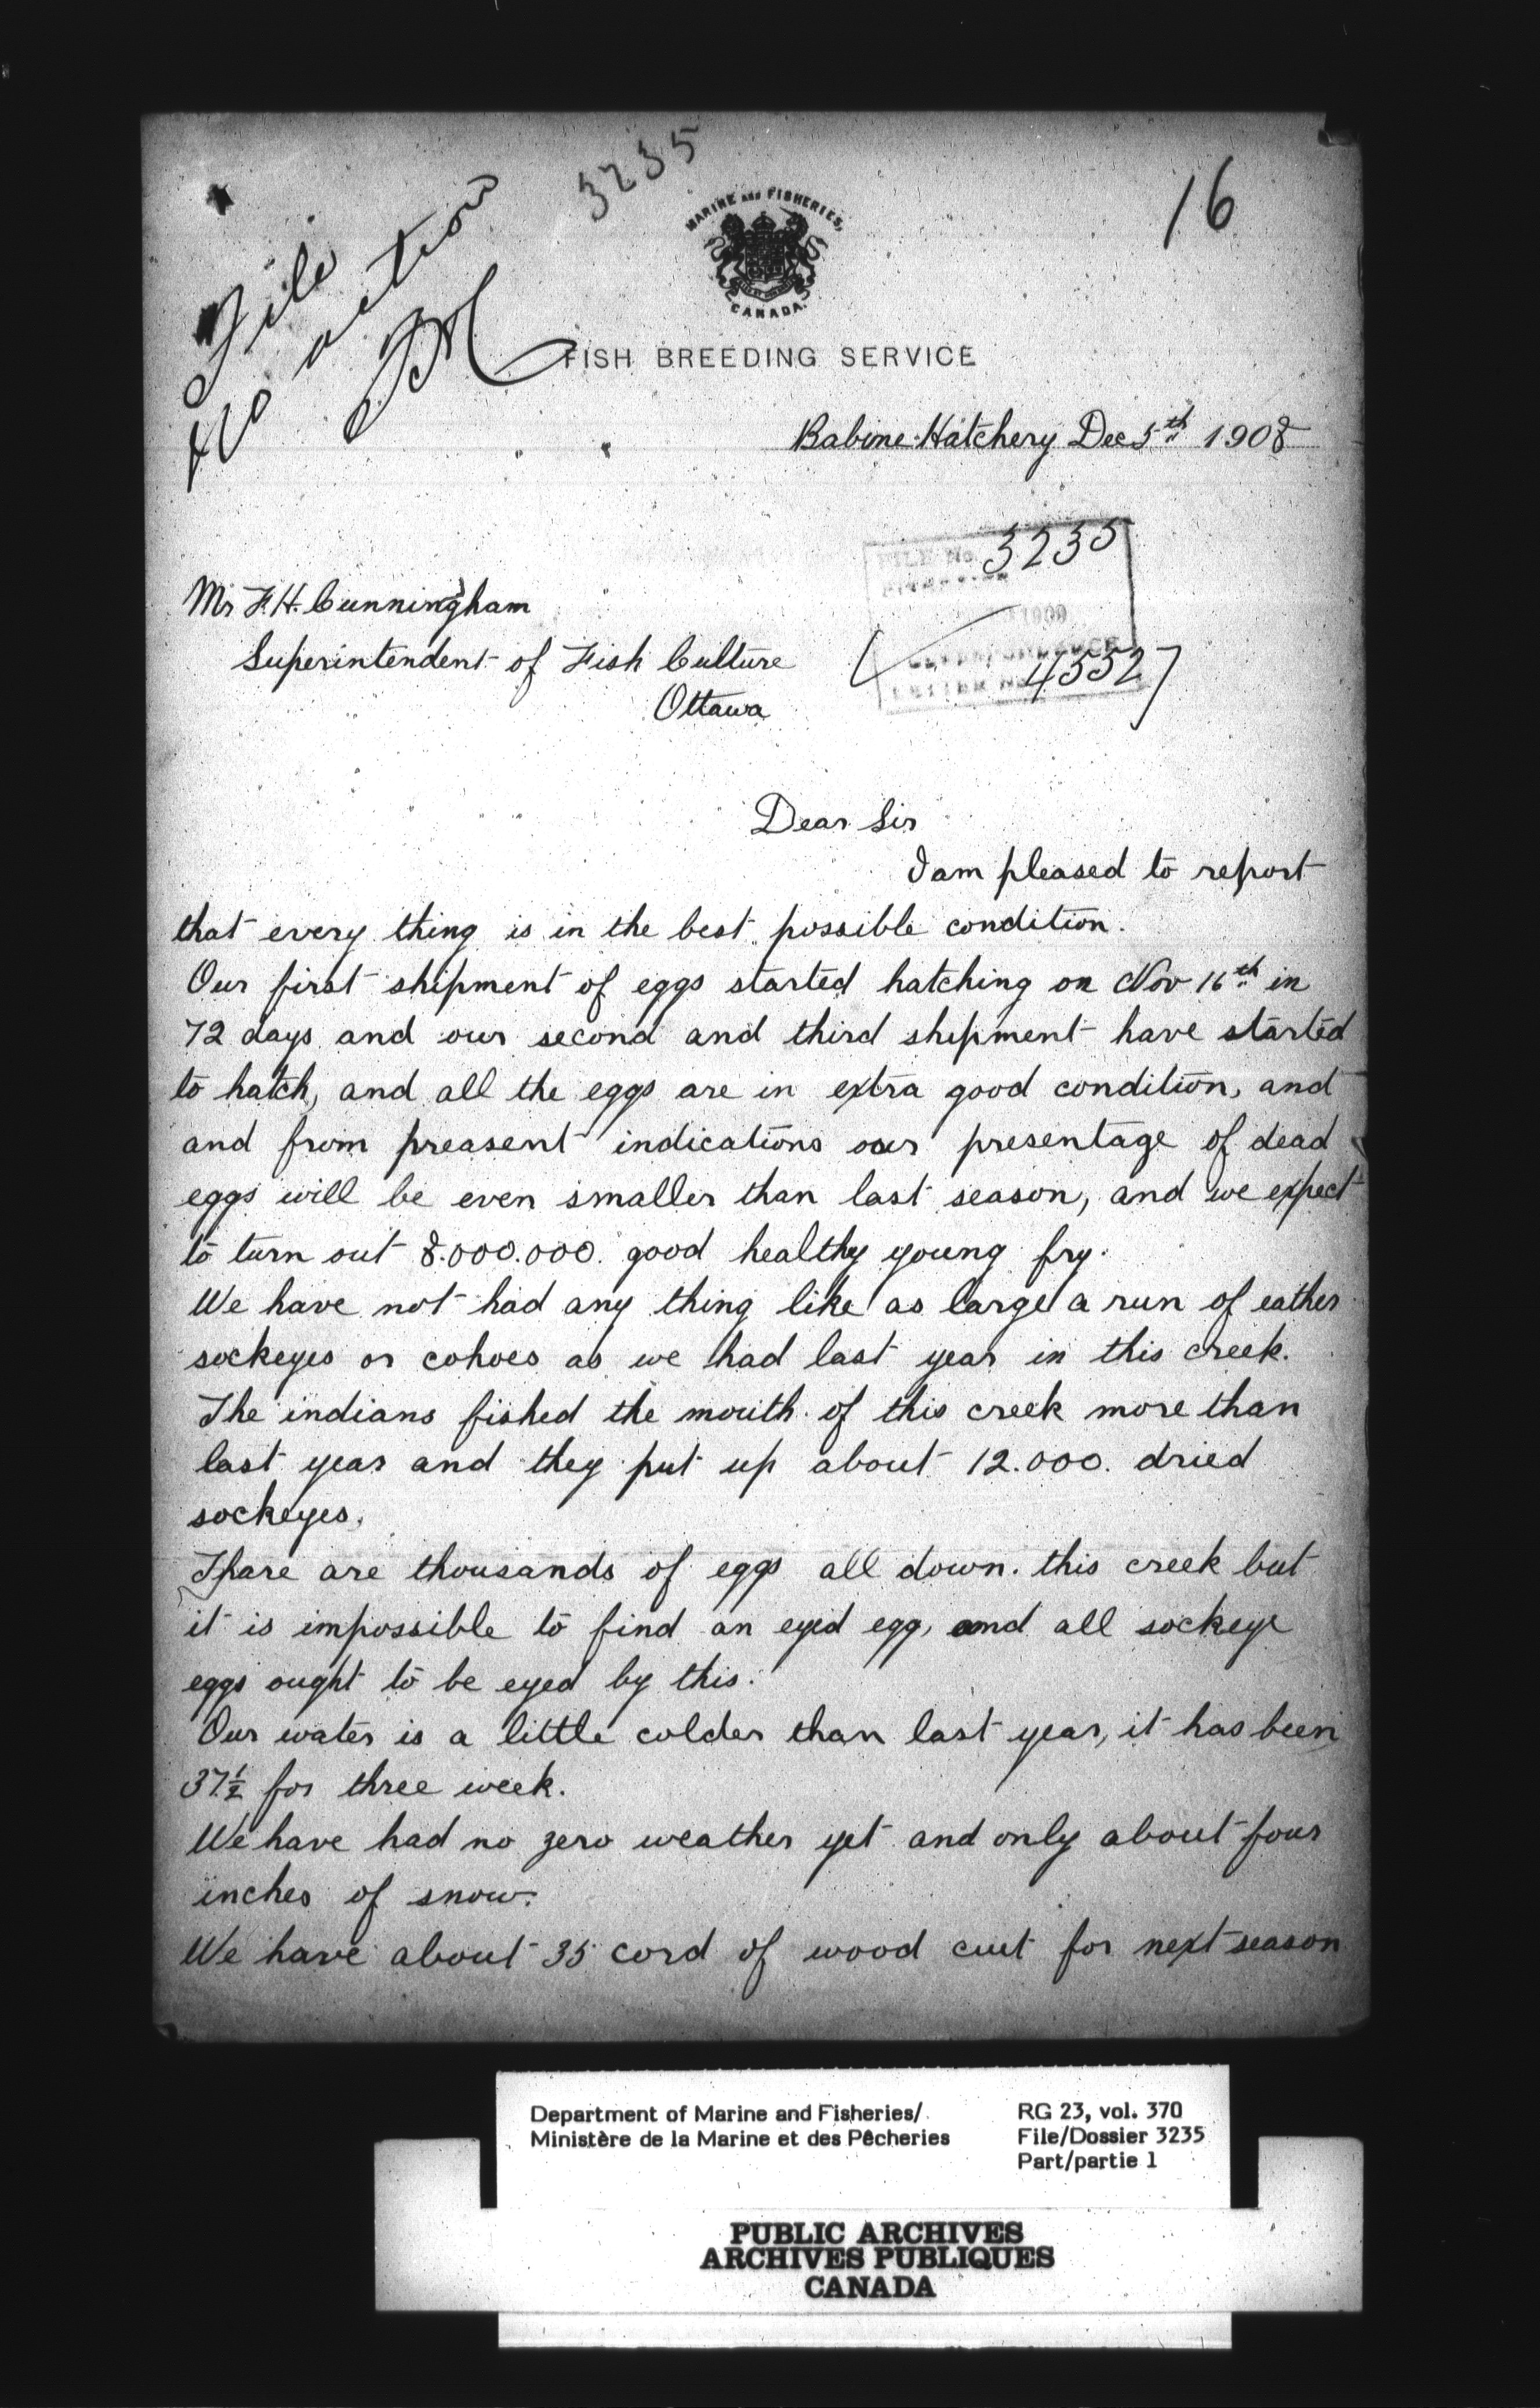 3235
16
File
No action
MARINE AND FISHERIES,
CANADA.
FISH BREEDING SERVICE
Babine Hatchery Dec 5th 1908
FILE No. 3235
Mr F.H. Cunningham
1909
Superintendent of Fish Culture
LETTER No 45527
Ottawa
Dear Sir
I am pleased to report
that every thing is in the best possible condition.
Our first shipment of eggs started hatching on Nov 16th in
72 days and our second and third shipment have started
to hatch, and all the eggs are in extra good condition, and
and from preasent indications our presentage of dead
eggs will be even smaller than last season, and we expect
to turn out 8.000.000. good healthy young fry.
We have not had any thing like as large a run of eather
sockeyes or cohoes as we had last year in this creek.
The indians fished the mouth of this creek more than
last year and they put up about 12.000. dried
sockeyes.
Thare are thousands of eggs all down this creek but
it is impossible to find an eyed egg, and all sockeye
eggs ought to be eyed by this.
Our water is a little colder than last year, it has been
37 1/2 for three week.
We have had no zero weather yet and only about four
inches of snow.
We have about 35 cord of wood cut for next season
Department of Marine and Fisheries/
Ministère de la Marine et des Pêcheries
RG 23, vol. 370
File/Dossier 3235
Part/partie 1
PUBLIC ARCHIVES
ARCHIVES PUBLIQUES
CANADA